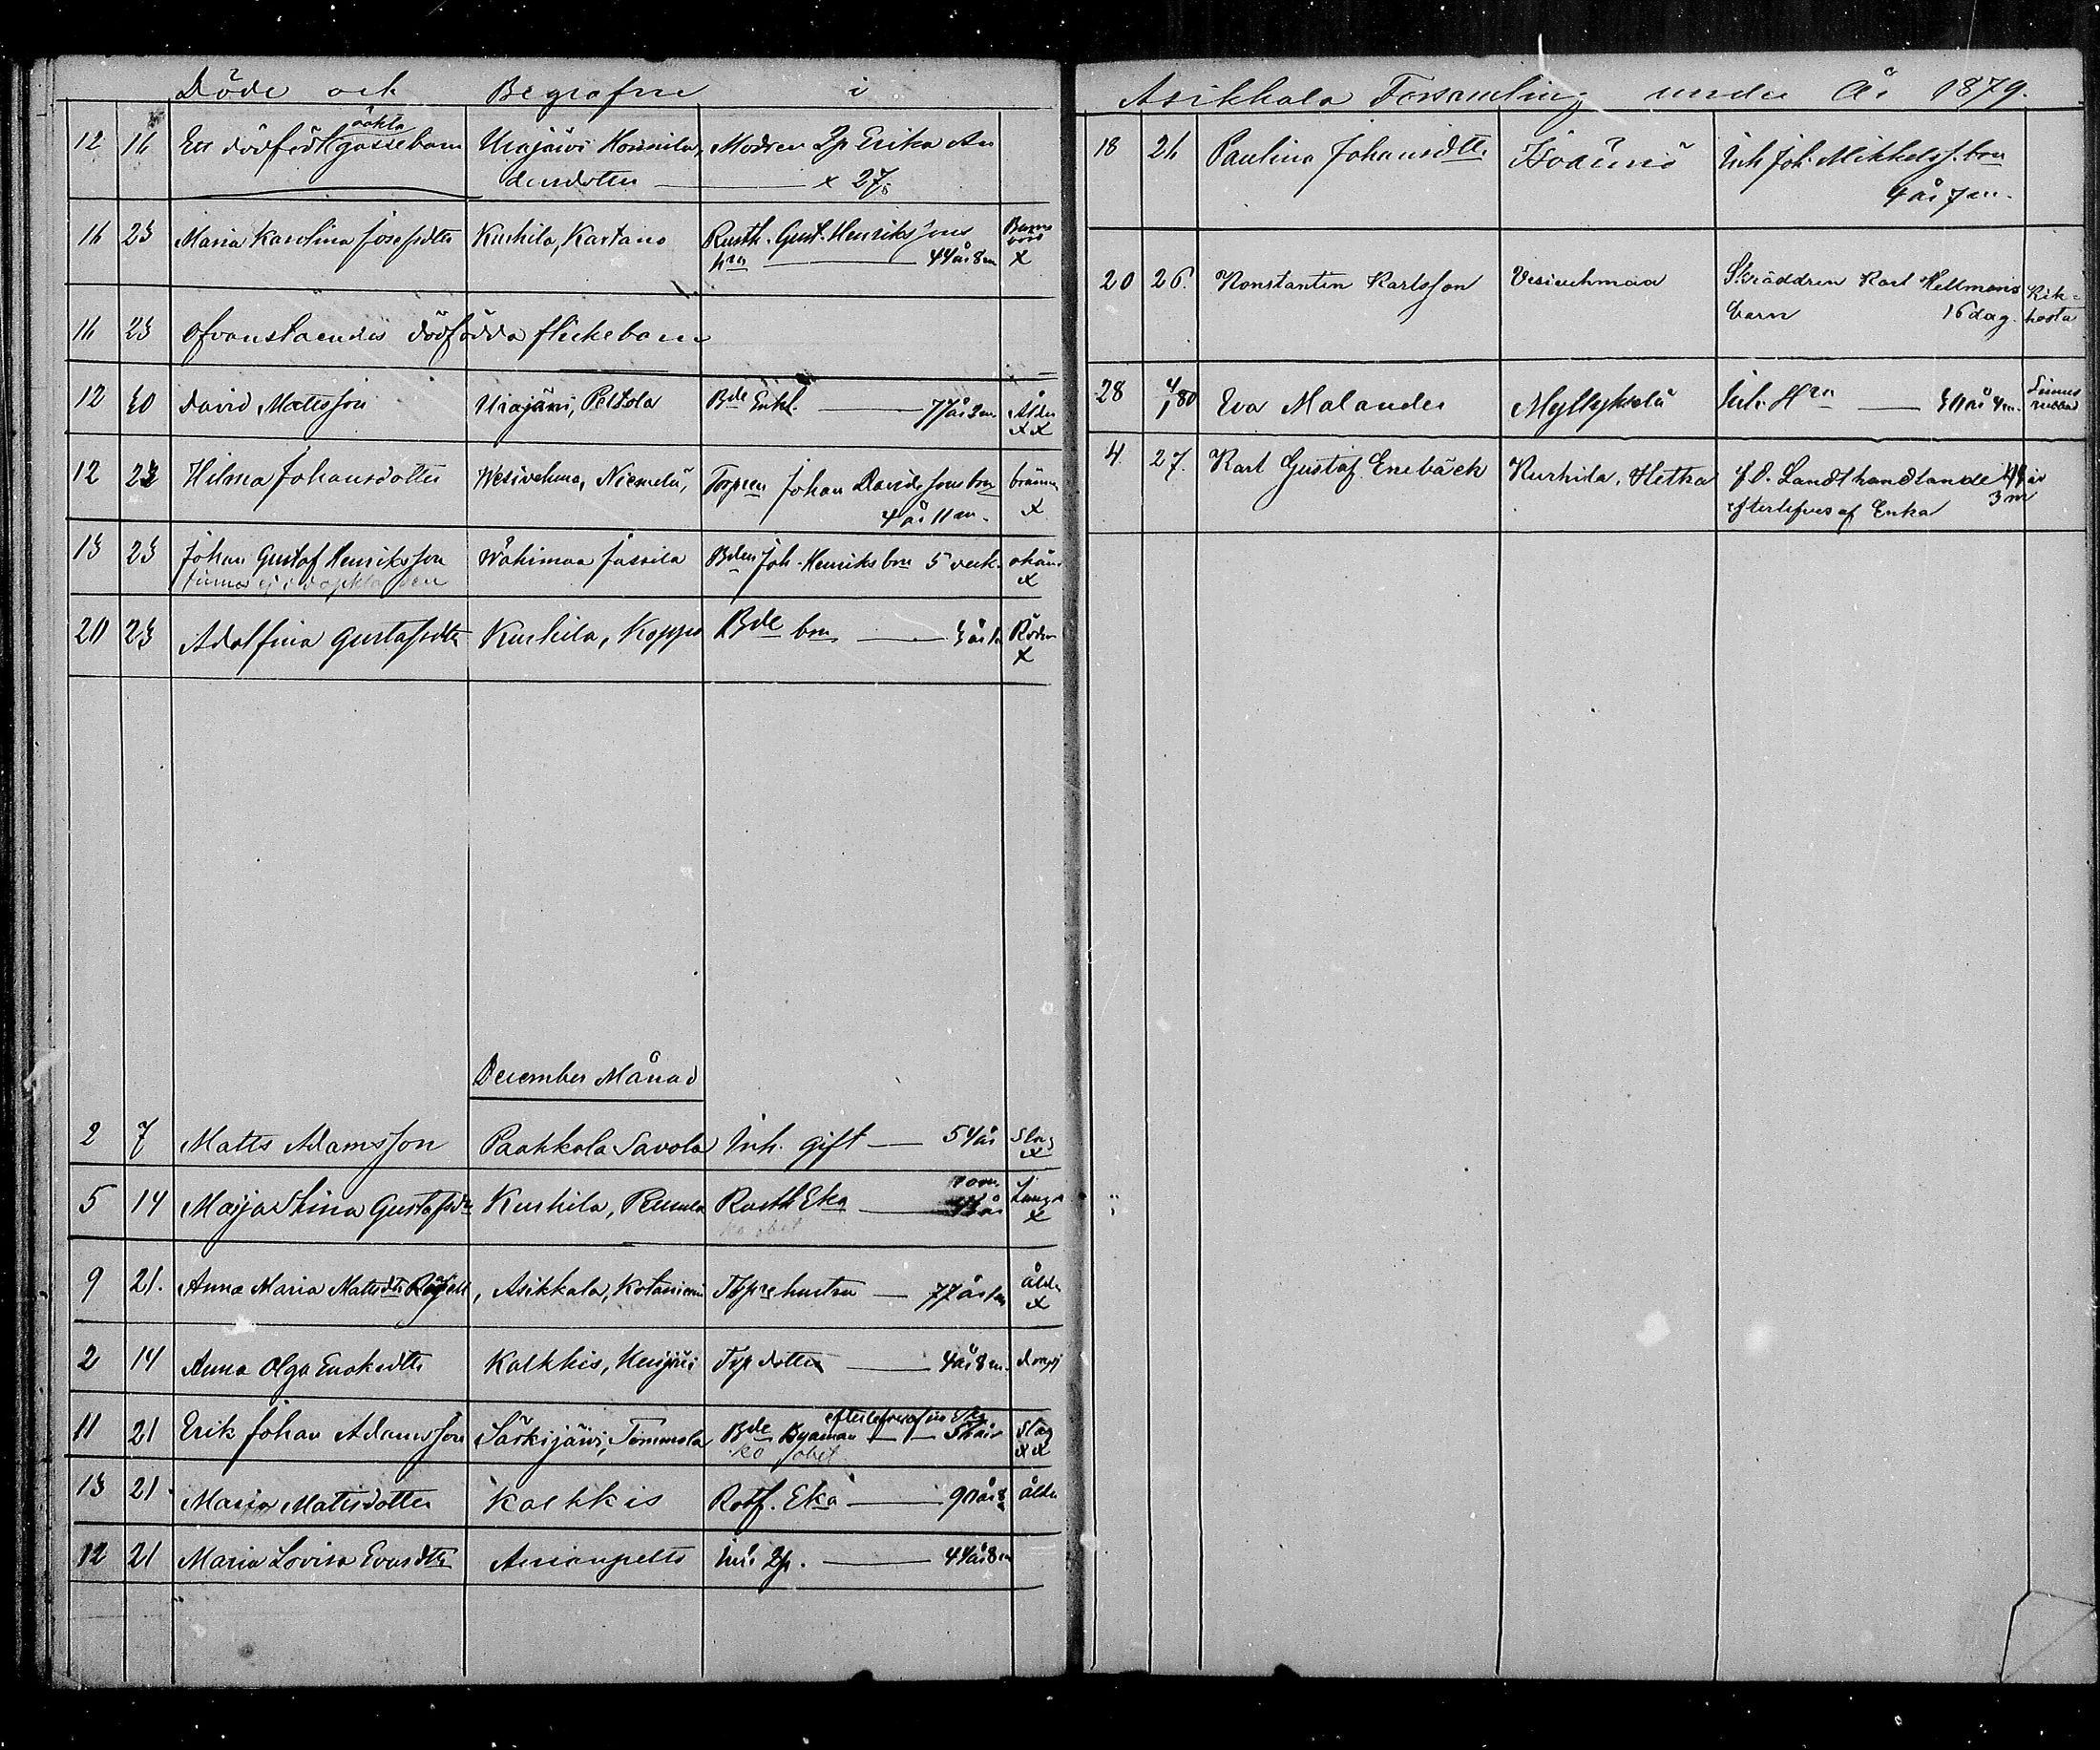 Döde och Begrafne i
12 16 Ett dödfödt oäkta gossebarn Urajärvi Honnila, Modren Ip Erika An
dersdotter — x 27.
16 23 Maria Karolina Josefsdtr Kurhila, Kartano Rusth. Gust. Henrikssons Barns
hru — 44 år 8 m börd x
16 23 Ofvanstaendes dödfödda flickebarn
12 30 David Mattsson Urajärvi, Peltola Bde Enkl. — 77 år 2 m Ålder
xx
12 23 Hilma Johansdotter Wesivehma, Niemelä, Torpren Johan Davidssons brn bränn
4 år 11 m. x
13 23 Johan Gustaf Henriksson Wähimaa Jussila Bden Joh. Henriks brn 5 veck. okänd
finnes ej i döpta x
20 23 Adolfina Gustafsdtr Kurhila, Koppo Bde brn — 3 år Röds
x
December Månad
2 7 Matts Adamsson Paakkola Savola Inh. gift — 54 år Slag
x
5 14 Maija Stina Gustafsdr Kurhila, Rusth Eka — Lungs
x
9 21. Anna Maria Mattsdtr, Asikkala, Kotaniemi Tpre hustru — 77 år ålder
x
2 14 Anna Olga Enoksdtr Kalkkis, Torp dotter — 4 år 8 m.
11 21 Erik Johan Adamsson Särkijärvi, Tommola Bde Byaman efterlefves af Slag
xx
13 21. Maria Mattsdotter Kalkkis Rotf. Eka — 90 år 8 ålder
12 21 Maria Lovisa Evasdtr Anianpelto Inh. Ip. — 44 år 8 m
Asikkala Församling under År 1879.
18 21 Paulina Johansdtr Isoäiniö Inh Joh. Mikkelss. brn
4 år 7 m.
20 26. Konstantin Karlsson Vesivehmaa Skräddren Karl Hellmans Kik-
barn 16 dag. hosta
28 4/1 80 Eva Malander Myllykselä Inh. Hru — 30 år 4 m.
4. 27. Karl Gustaf Enebäck Kurhila, Hetka f.d. Landthandlande
efterlefves af Enka 3 m